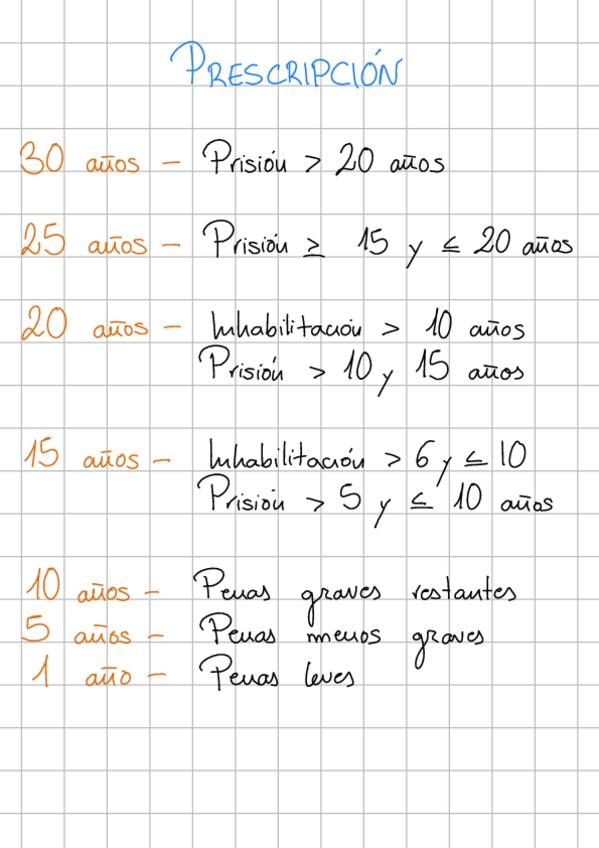 PRESCRIPCIÓN
30 años - Prisión > 20 años
25 años - Prisión ≥ 15 y ≤ 20 años
20 años - Inhabilitación > 10 años
Prisión > 10 y 15 años
15 años - Inhabilitación > 6 y ≤ 10
Prisión > 5 y ≤ 10 años
10 años - Penas graves restantes
5 años - Penas menos graves
1 año - Penas leves